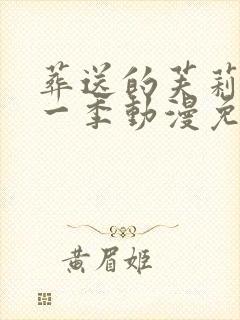 葬送的芙莉
一季動漫免
黄眉姬